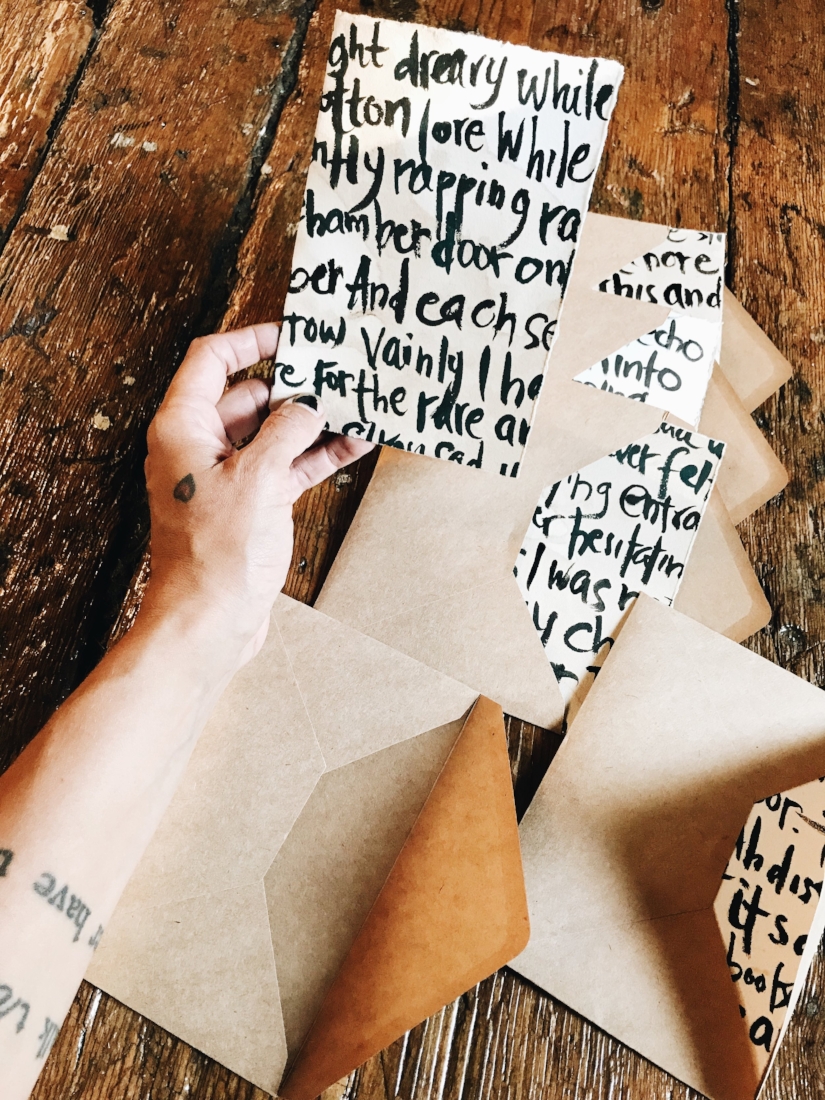 ght dreary while
otton lore While
ntly rapping ra
hamber door onl
ber And each se
row Vainly I ha
re For the rare an
silken sad u
more
this and
echo
into
ver felt
ing entra
er hesitatin
I was n
y ch
or.
th dis
it so
books
a
have